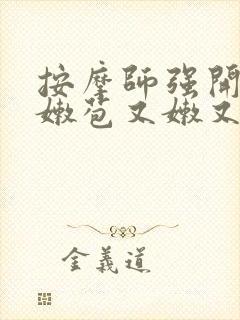 按摩師强開
嫩苞又嫩又
金義道